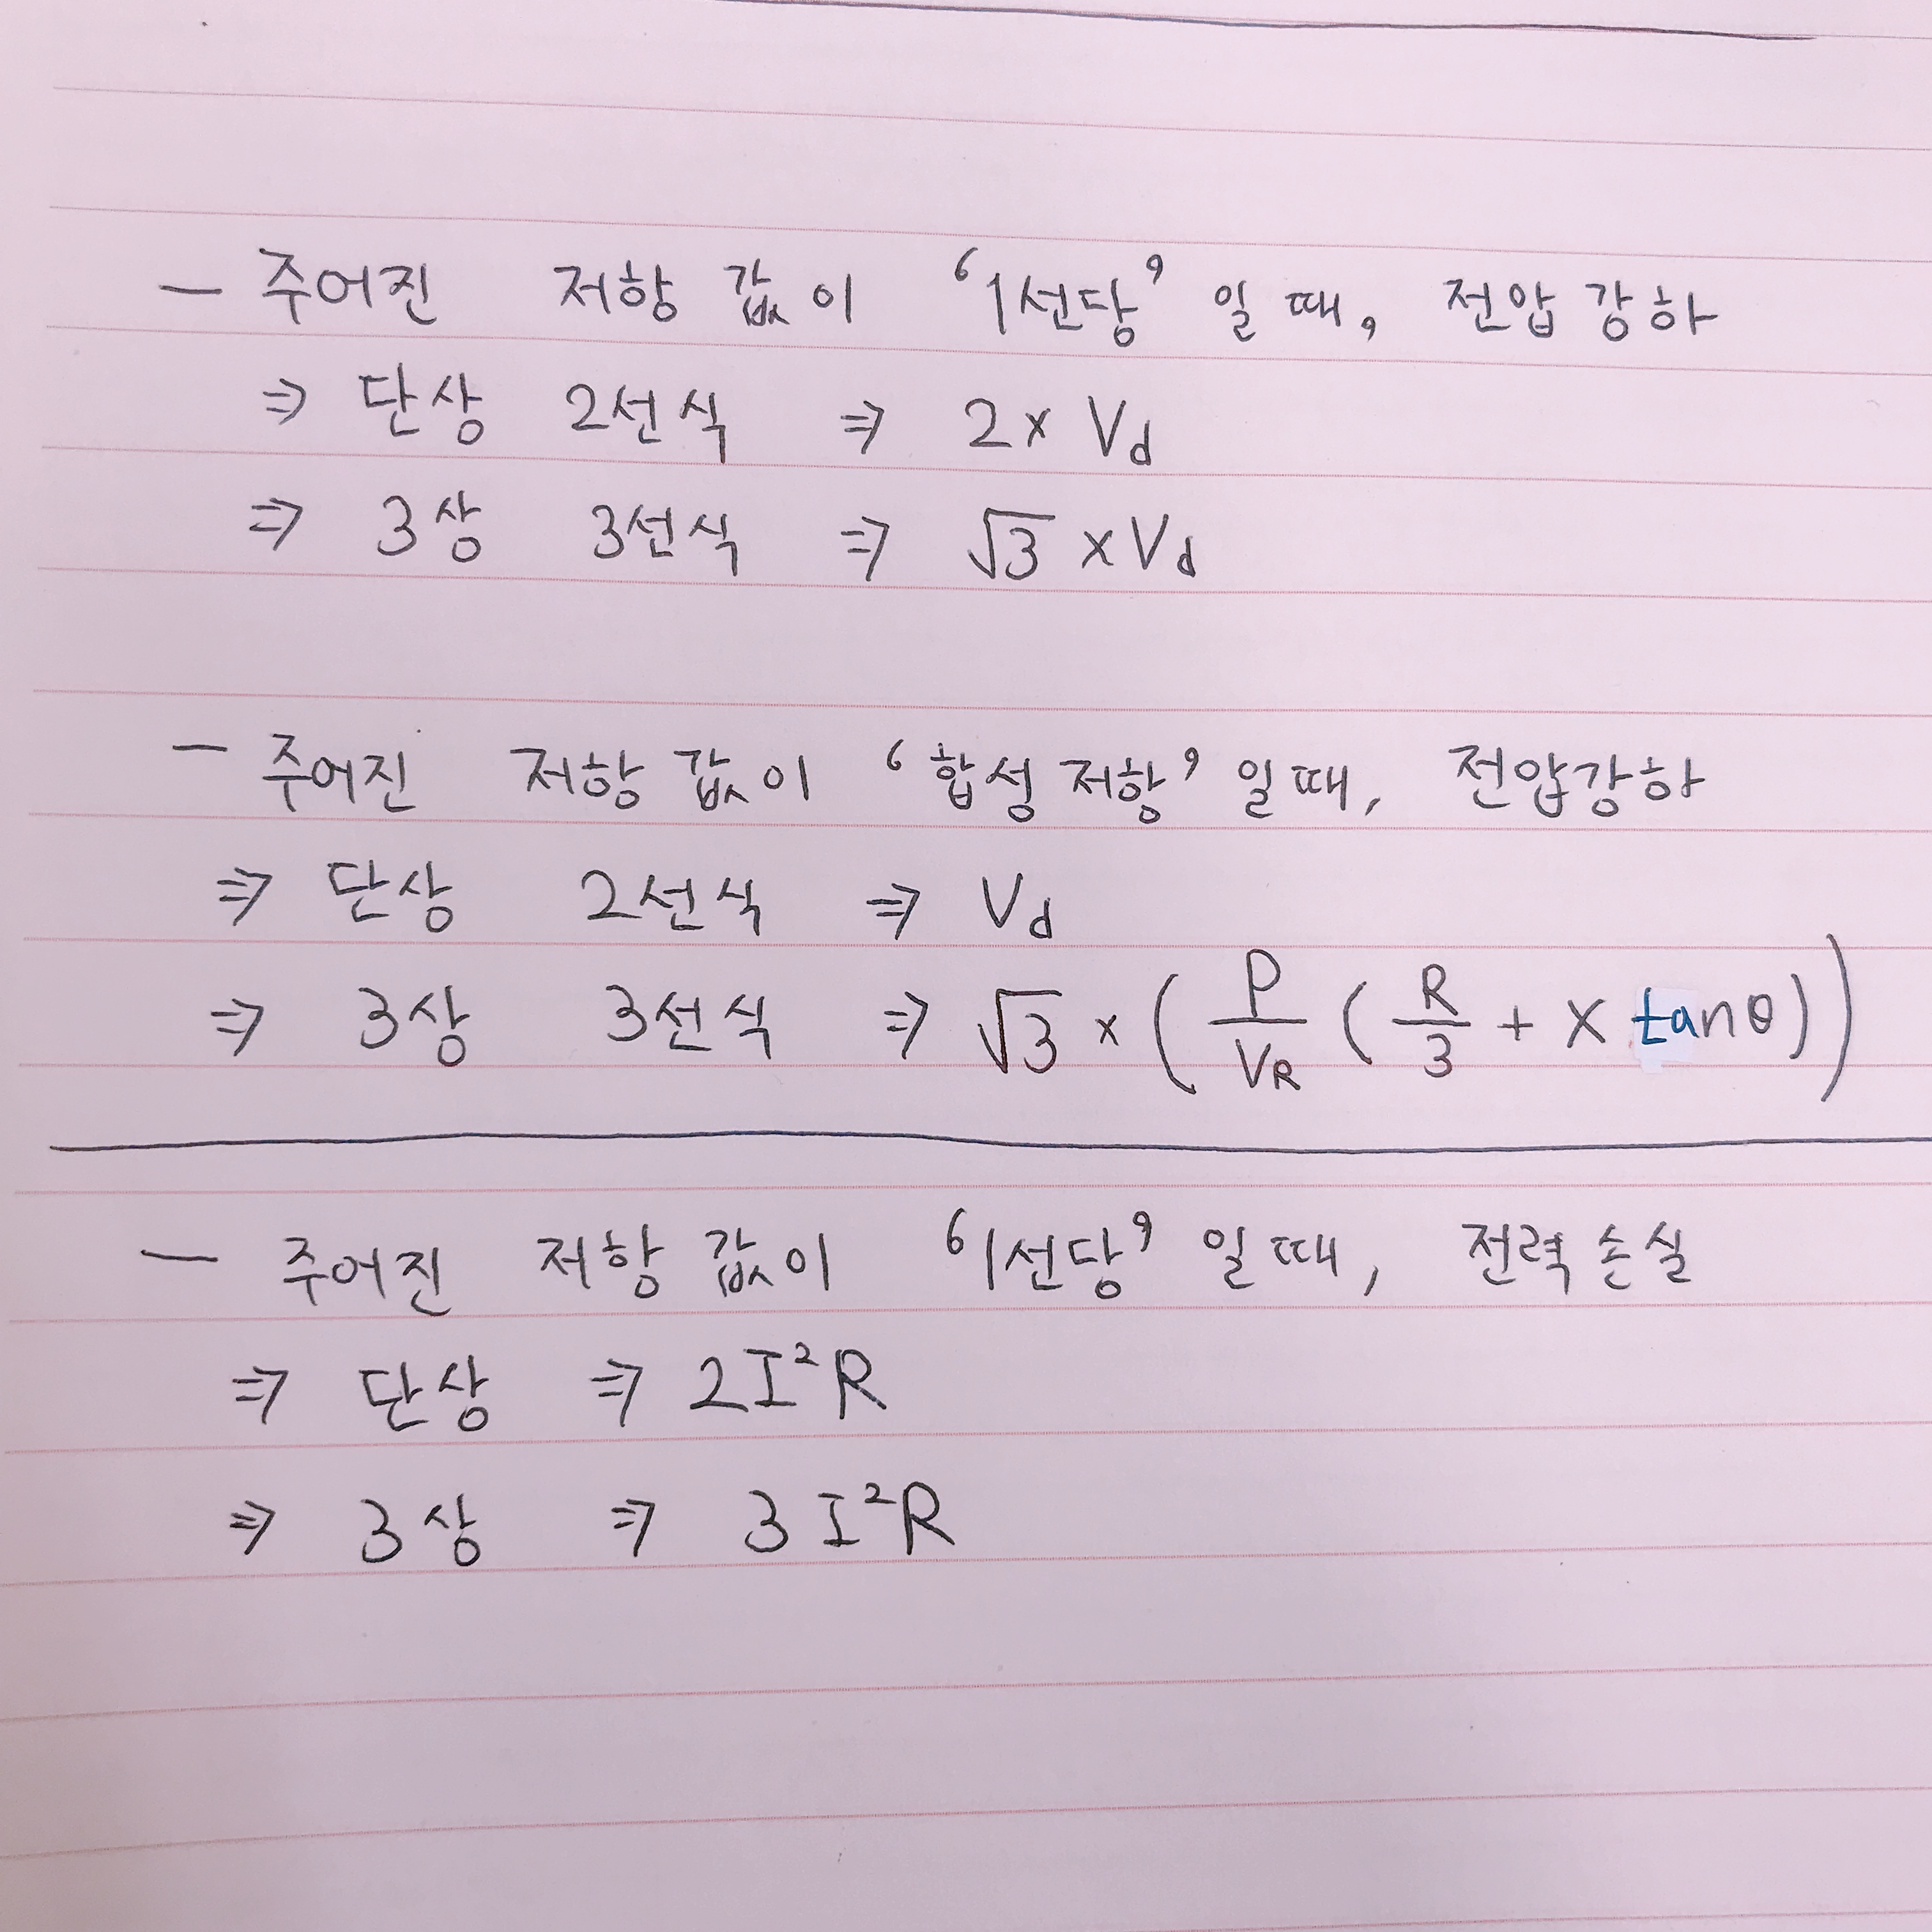 - 주어진 저항 값이 '1선당' 일 때, 전압 강하
⇒ 단상 2선식 ⇒ 2 × Vd
⇒ 3상 3선식 ⇒ √3 × Vd
- 주어진 저항 값이 '합성 저항' 일 때, 전압강하
⇒ 단상 2선식 ⇒ Vd
⇒ 3상 3선식 ⇒ √3 × (P/VR (R/3 + X tanθ))
- 주어진 저항 값이 '1선당' 일 때, 전력 손실
⇒ 단상 ⇒ 2I²R
⇒ 3상 ⇒ 3I²R